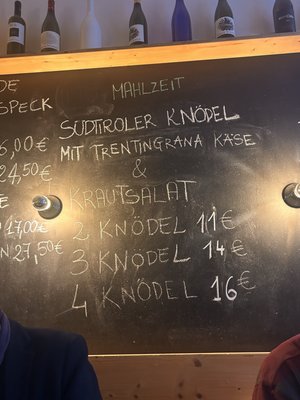 DE
SPECK
6,00€
24,50€
E
17,00€
N 27,50€
MAHLZEIT
SÜDTIROLER KNÖDEL
MIT TRENTINGRANA KÄSE
&
KRAUTSALAT
2 KNÖDEL 11€
3 KNÖDEL 14€
4 KNÖDEL 16€